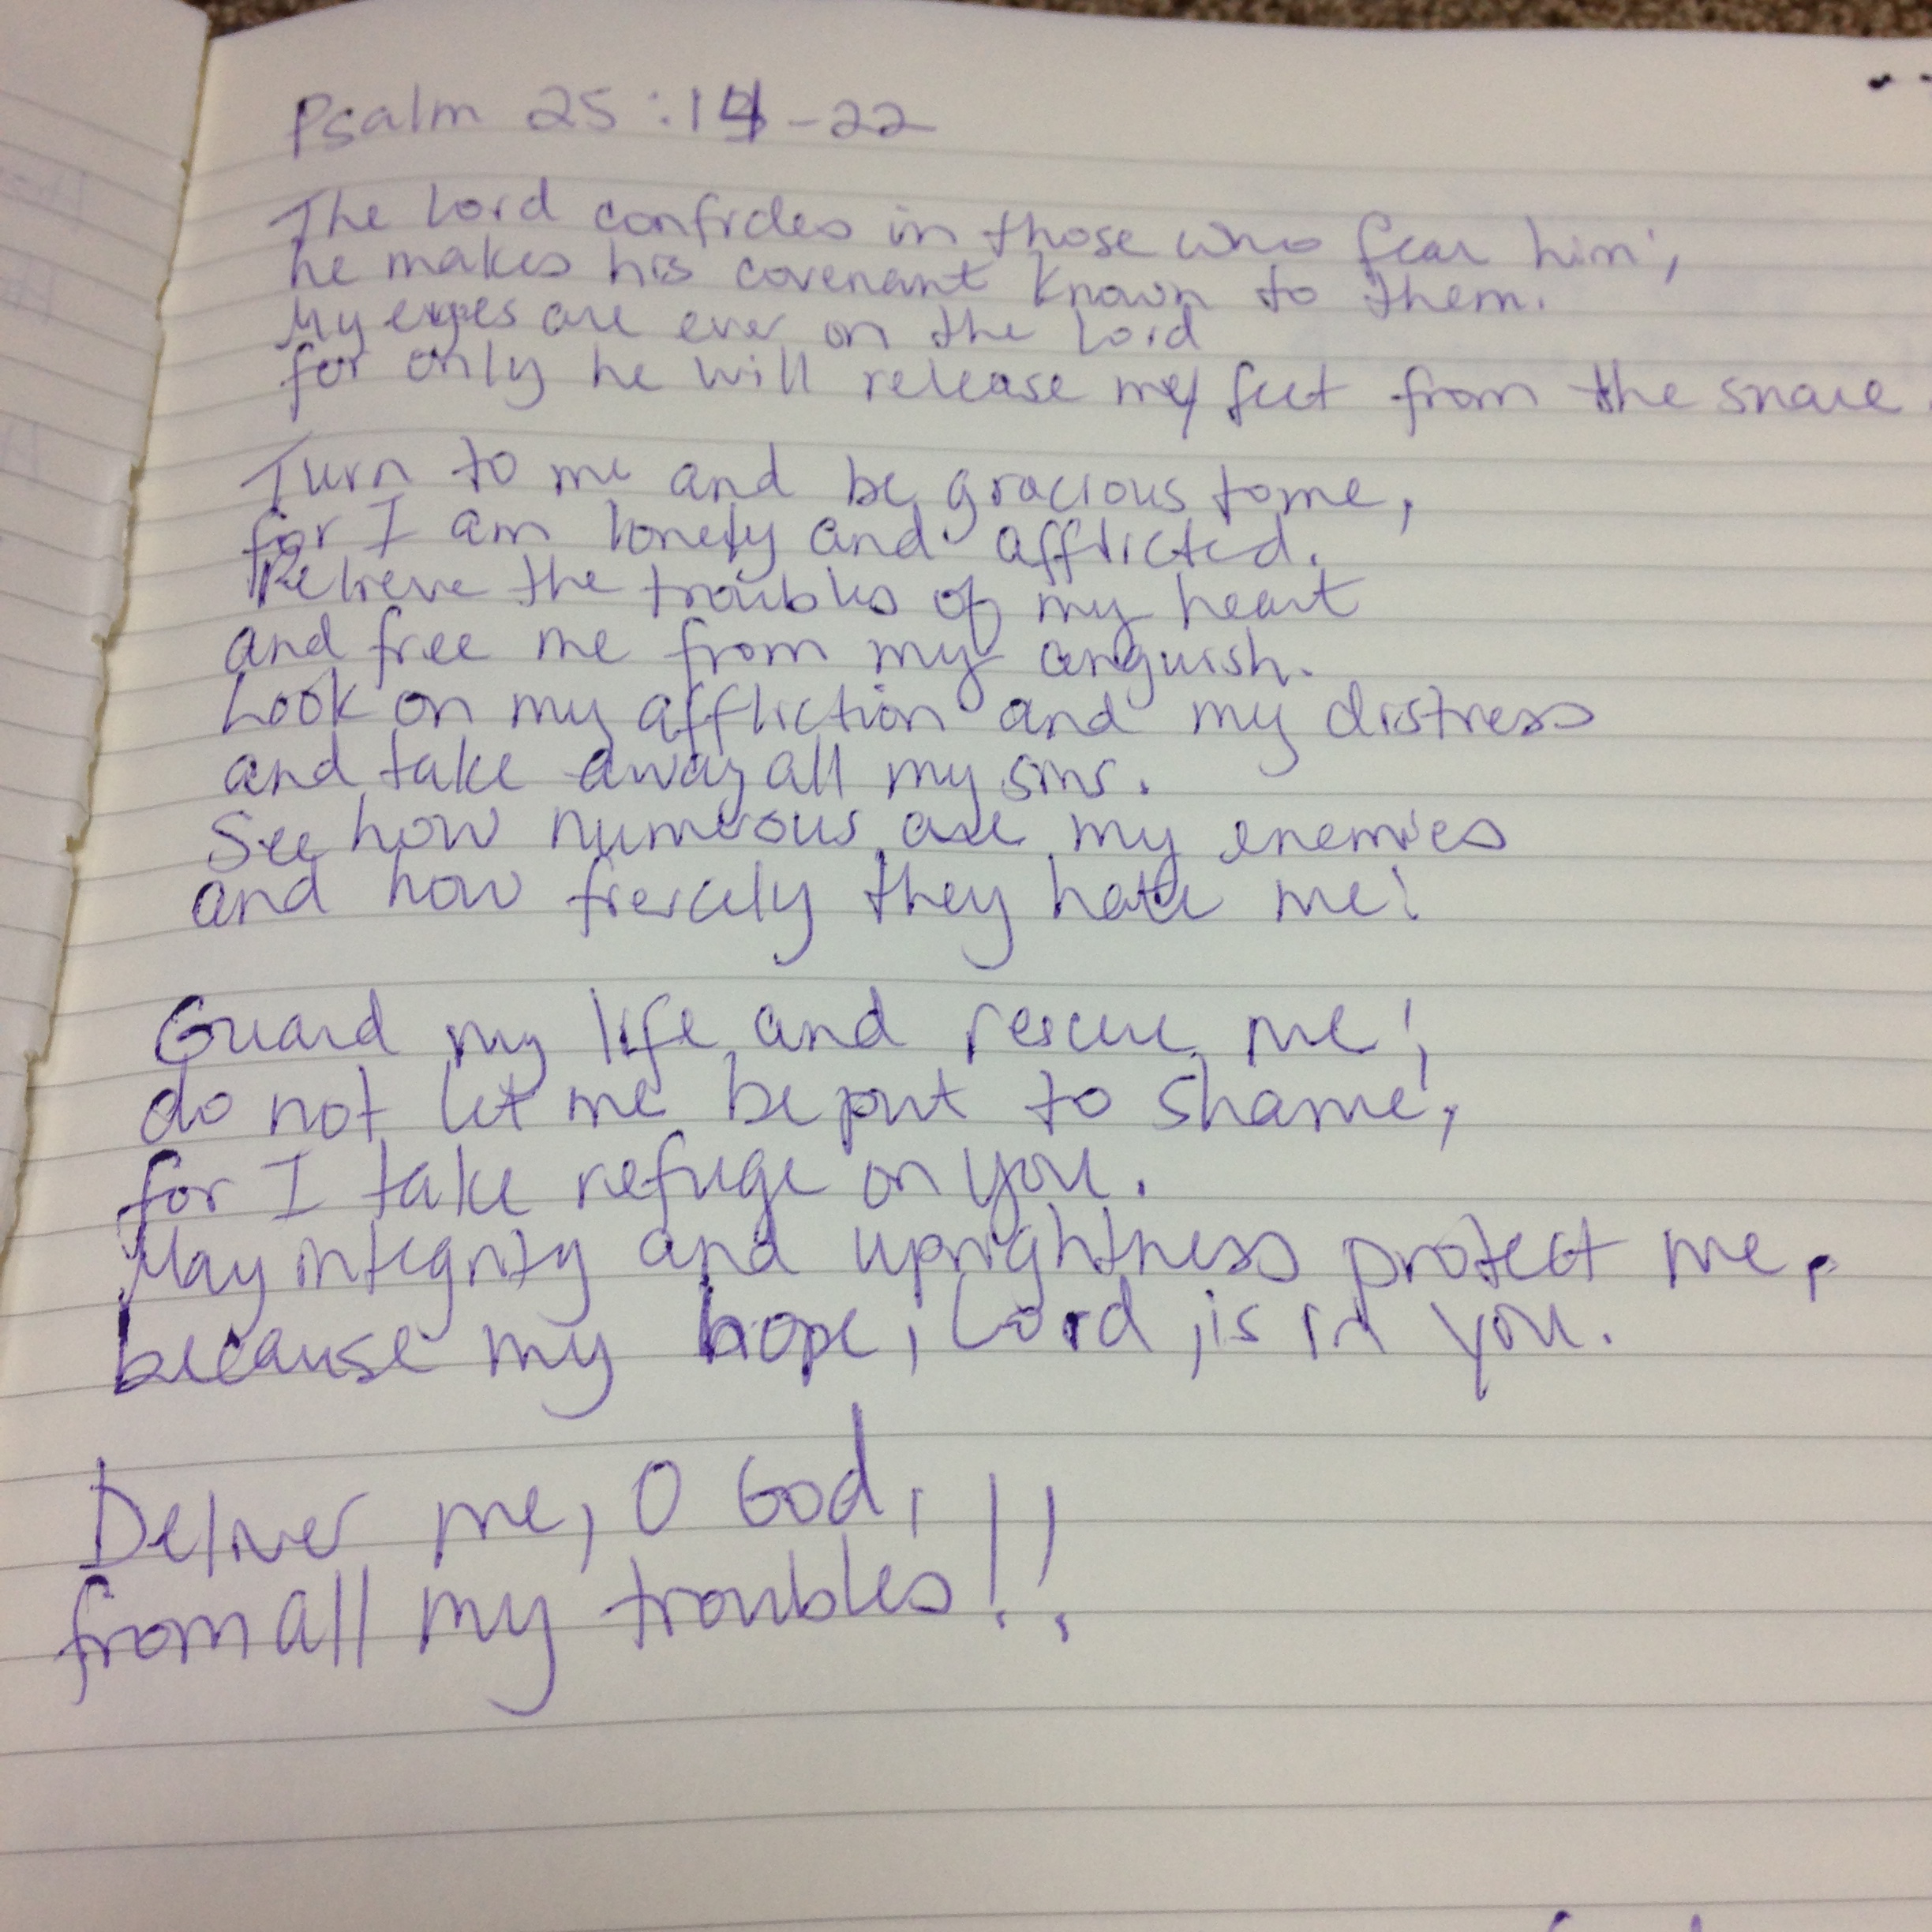 Psalm 25:14-22
The Lord confides in those who fear him;
he makes his covenant known to them.
My eyes are ever on the Lord
for only he will release my feet from the snare.
Turn to me and be gracious to me,
for I am lonely and afflicted.
Relieve the troubles of my heart
and free me from my anguish.
Look on my affliction and my distress
and take away all my sins.
See how numerous are my enemies
and how fiercely they hate me!
Guard my life and rescue me;
do not let me be put to shame,
for I take refuge in you.
May integrity and uprightness protect me,
because my hope, Lord, is in you.
Deliver me, O God,
from all my troubles!!